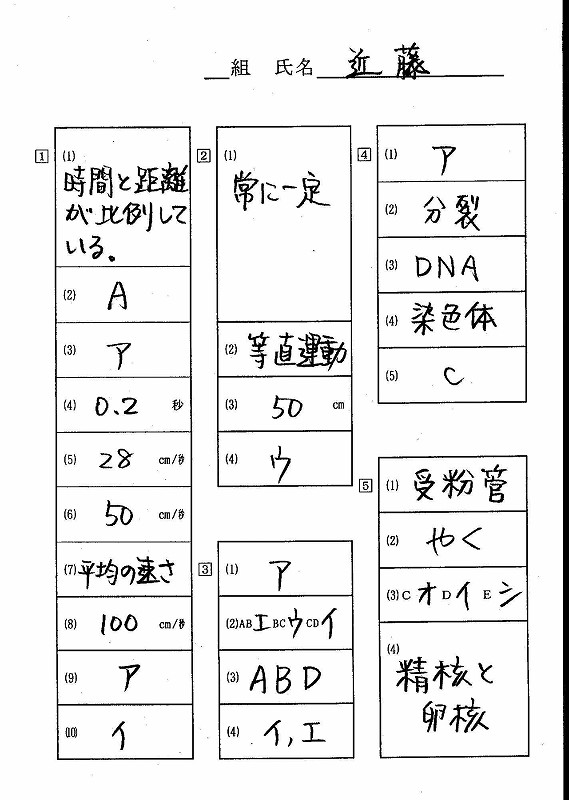 組 氏名 近藤
1
(1) 時間と距離
が比例して
いる。
(2) A
(3) ア
(4) 0.2 秒
(5) 28 cm/秒
(6) 50 cm/秒
(7) 平均の速さ
(8) 100 cm/秒
(9) ア
(10) イ
2
(1) 常に一定
(2) 等直運動
(3) 50 cm
(4) ウ
3
(1) ア
(2) AB エ BC ウ CD イ
(3) ABD
(4) イ,エ
4
(1) ア
(2) 分裂
(3) DNA
(4) 染色体
(5) C
5
(1) 受粉管
(2) やく
(3) C オ D イ E シ
(4) 精核と
卵核